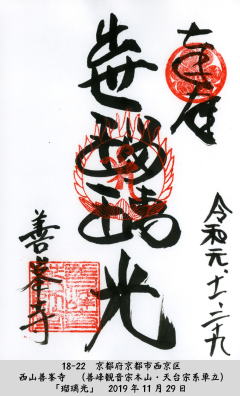 奉拝
瑠璃光
令和元、十一、二十九
善峯寺
18-22 京都府京都市西京区
西山善峯寺 （善峰観音宗本山・天台宗系単立）
「瑠璃光」 2019年11月29日